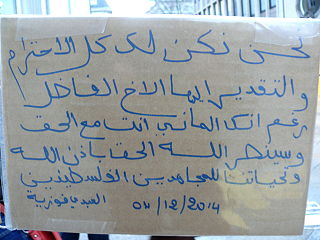 نحن نكن لك كل الاحترام
والتقدير ايها الاخ الفاضل
رغم انك الماني انت مع الحق
وسينصر الله الحق باذن الله
وتحياتنا للمجاهدين الفلسطينيين
04/12/2014